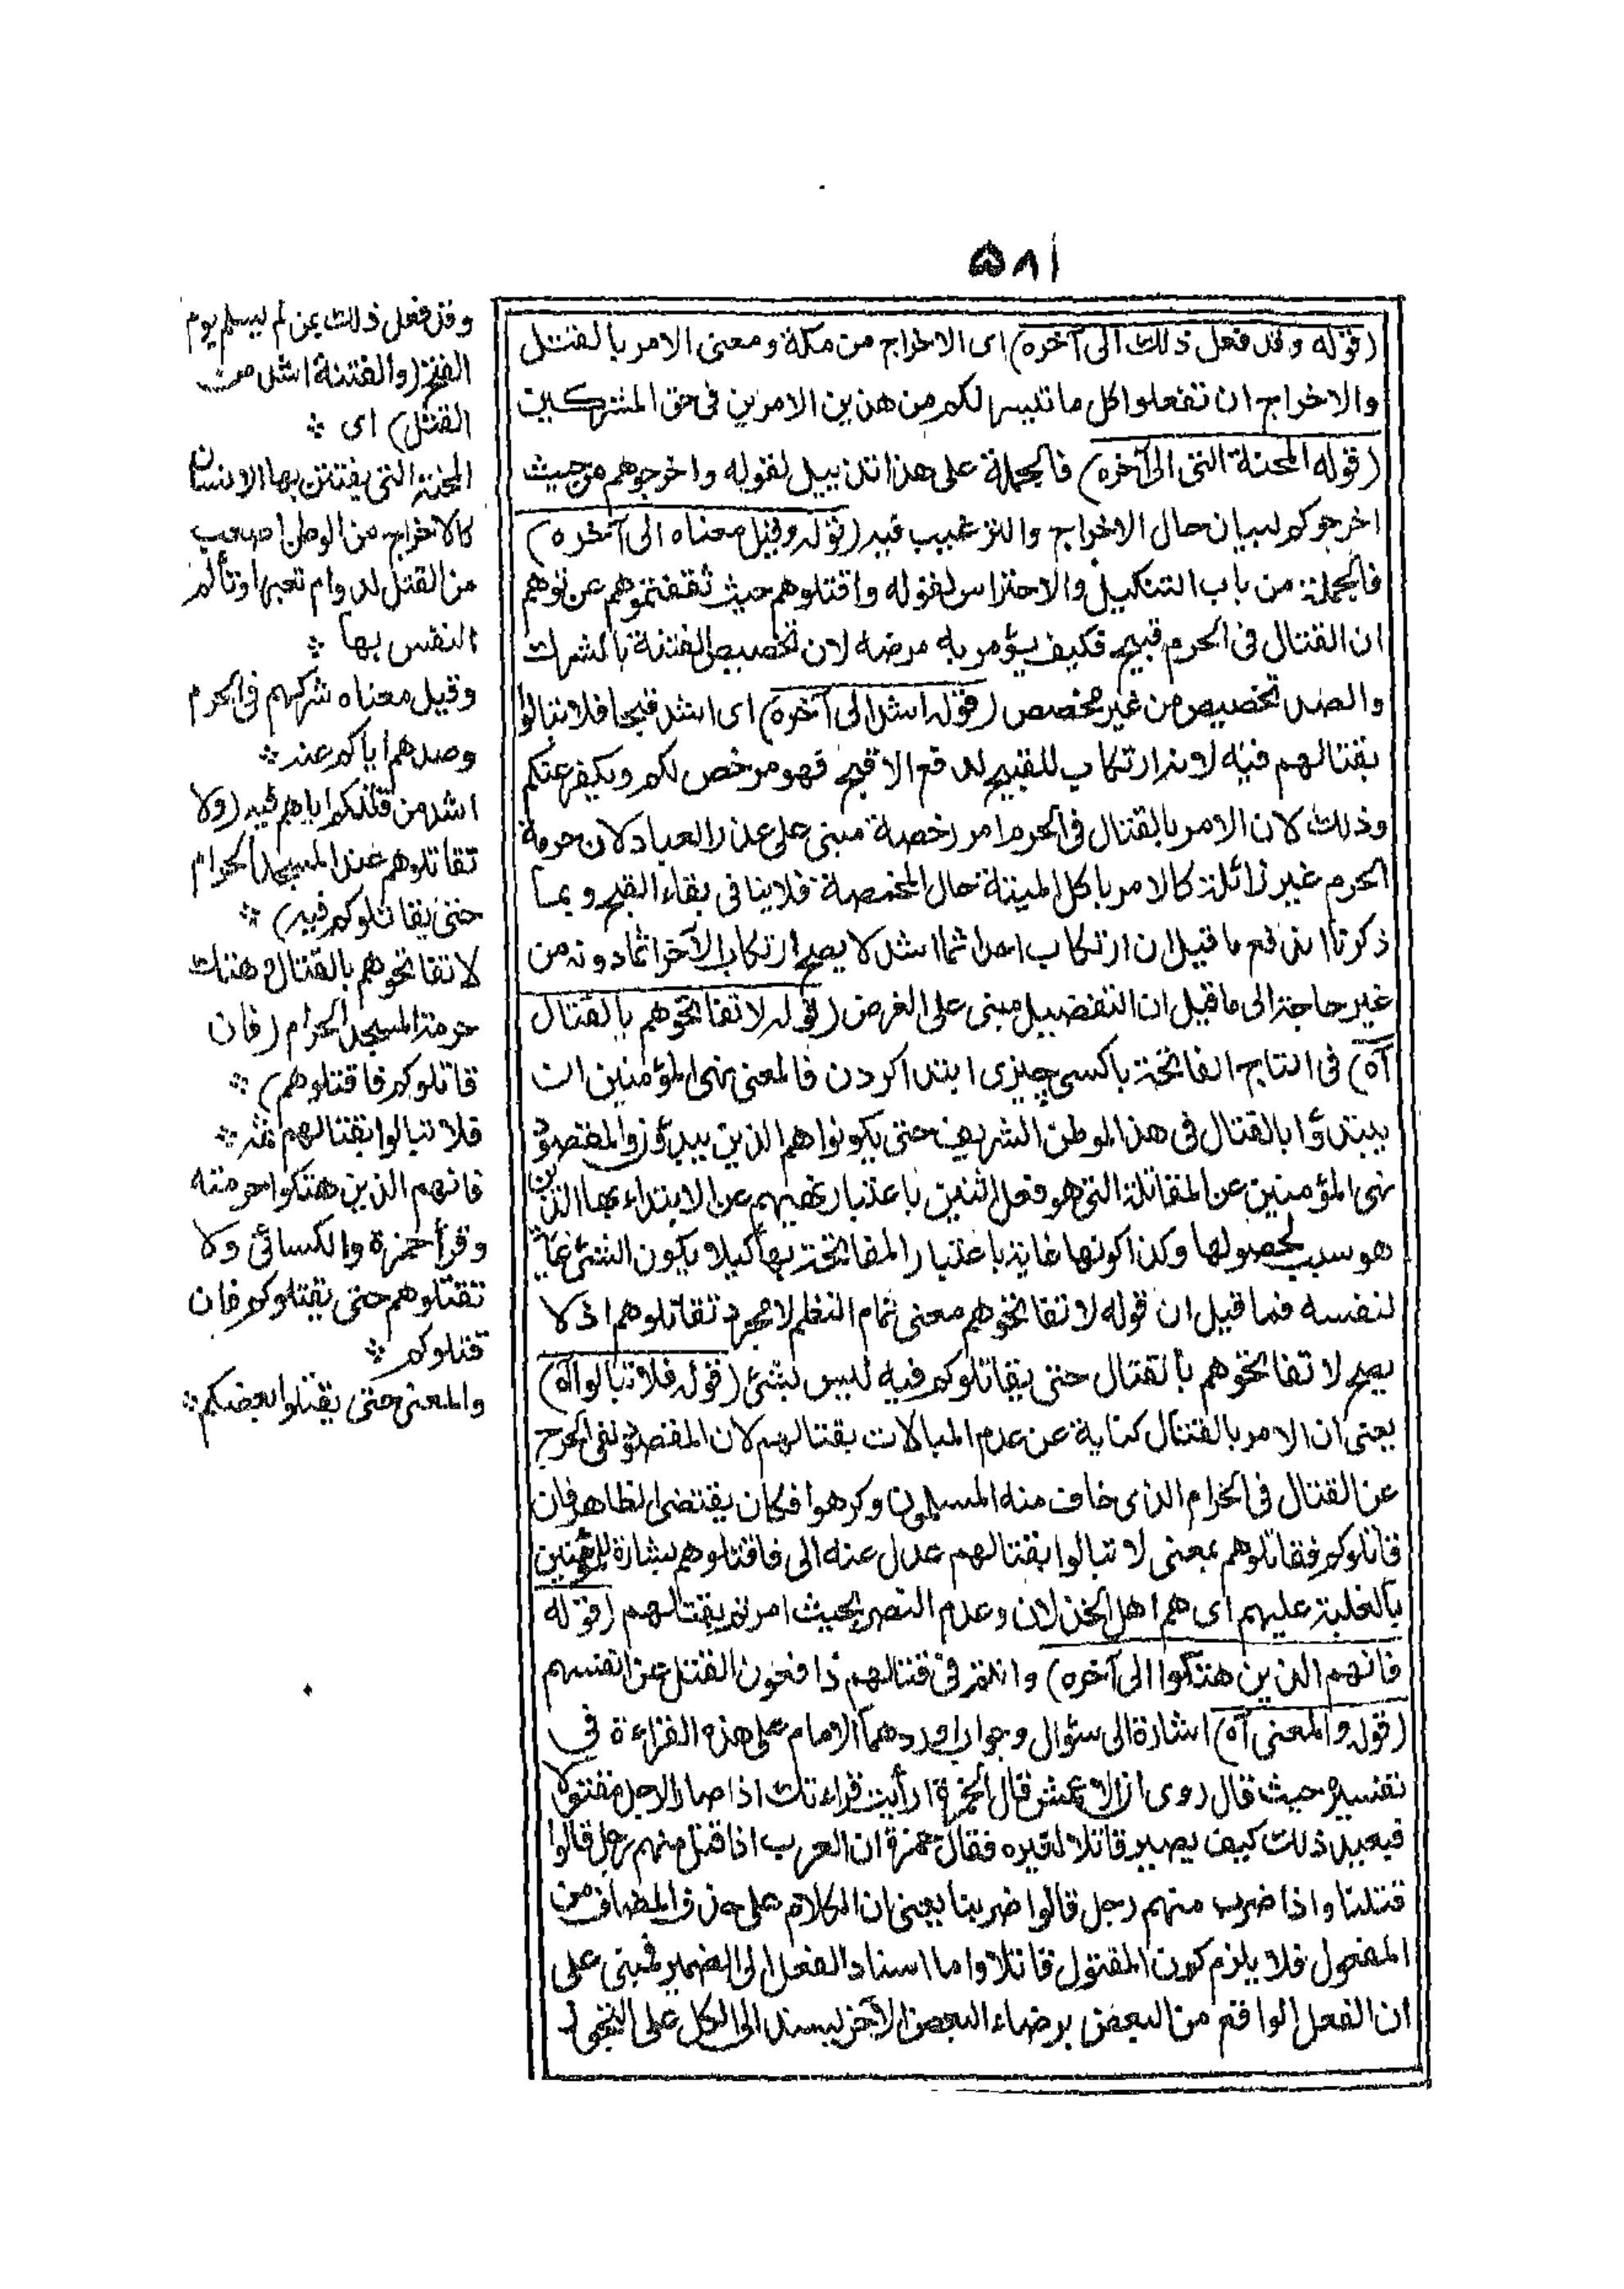 ٥٨١
(قوله وقد فعل ذلك الى آخره) اى الاخراج من مكة ومعنى الامر بالقتل
والاخراج ان تفعلوا كل ما تيسر لكم من هذين الامرين فى حق المشركين
(قوله المحنة التى الى آخره) فالجملة على هذا تذييل لقوله واخرجوهم من حيث
اخرجوكم لبيان حال الاخراج والترغيب فيه (قوله وقيل معناه الى آخره)
فالجملة من باب التكميل والاحتراس لقوله واقتلوهم حيث ثقفتموهم عن توهم
ان القتال فى الحرم قبيح فكيف يؤمر به مرضه لان تخصيص الفتنة بالشرك
والصد تخصيص من غير مخصص (قوله اشد الى آخره) اى اشد قبحا فلا تبالوا
بقتالهم فيه لانه ارتكاب للقبيح لدفع الاقبح فهو مرخص لكم ويكفر عنكم
وذلك لان الامر بالقتال فى الحرم امر رخصة مبنى على عذر العباد لان حرمة
الحرم غير زائلة كالامر باكل الميتة حال المخمصة فلا ينافى بقاء القبح وبما
ذكرنا اندفع ما قيل ان ارتكاب احد اثما اشد لا يصح ارتكاب الآخر اثما دونه من
غير حاجة الى ما قيل ان التفضيل مبنى على الفرض (قوله لا تفاتحوهم بالقتال
آه) فى التاج الفاتحة باكسى چيزى ابتدا كردن فالمعنى نهى المؤمنين ان
يبتدؤا بالقتال فى هذا الموطن الشريف حتى يكونوا هم الذين يبدؤن والمقصود
نهى المؤمنين عن المقاتلة التى هو فعل اثنين باعتبار نهيهم عن الابتداء بها الذى
هو سبب لحصولها وكذا كونها غاية باعتبار المفاتحة بها كيلا يكون الشئ غاية
لنفسه فما قيل ان قوله لا تفاتحوهم معنى تمام النظم لا مجرد تقاتلوهم اذ لا
يصح لا تفاتحوهم بالقتال حتى يقاتلوكم فيه ليس بشئ (قوله فلا تبالوا آه)
يعنى ان الامر بالقتال كناية عن عدم المبالات بقتالهم لان المقصود نفى الحرج
عن القتال فى الحرام الذى خاف منه المسلمون وكرهوا فكان يقتضى الظاهر فان
قاتلوكم فقاتلوهم بمعنى لا تبالوا بقتالهم عدل عنه الى فاقتلوهم بشارة للمؤمنين
بالغلبة عليهم اى هم اهل الخذلان وعدم النصر بحيث امرتم بقتالهم (قوله
فانهم الذين هتكوا الى آخره) وانتم فى قتالهم دافعون القتل عن انفسهم
(قوله والمعنى آه) اشارة الى سؤال وجواب اوردهما الامام على هذه القراءة فى
تفسيره حيث قال روى ان الاعمش قال لحمزة ارأيت قراءتك اذا صار الرجل مقتولا
فبعد ذلك كيف يصير قاتلا لغيره فقال حمزة ان العرب اذا قتل منهم رجل قالوا
قتلنا واذا ضرب منهم رجل قالوا ضربنا يعنى ان الكلام على حذف المضاف من
المفعول فلا يلزم كون المقتول قاتلا واما اسناد الفعل الى الضمير فمبنى على
ان الفعل الواقع من البعض برضاء البعض الآخر يسند الى الكل على التجوز
وقد فعل ذلك بمن لم يسلم يوم
الفتح (والفتنة اشد من
القتل) اى
المحنة التى يفتتن بها الانسان
كالاخراج من الوطن اصعب
من القتل لدوام تعبها وتألم
النفس بها
وقيل معناه شركهم فى الحرم
وصدهم اياكم عنه
اشد من قتلكم اياهم فيه (ولا
تقاتلوهم عند المسجد الحرام
حتى يقاتلوكم فيه)
لا تفاتحوهم بالقتال وهتك
حرمة المسجد الحرام (فان
قاتلوكم فاقتلوهم)
فلا تبالوا بقتالهم ثمه
فانهم الذين هتكوا حرمته
وقرأ حمزة والكسائى ولا
تقتلوهم حتى يقتلوكم فان
قتلوكم
والمعنى حتى يقتلوا بعضكم